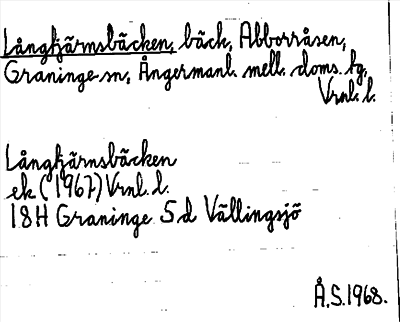 Långtjärnsbäcken, bäck, Abborråsen,
Graninge sn, Ångermanl. mell. doms. tg.
Vrnl. l.
Långtjärnsbäcken
ek (1967) Vrnl. l.
18H Graninge 5d Vällingsjö
Å.S. 1968.